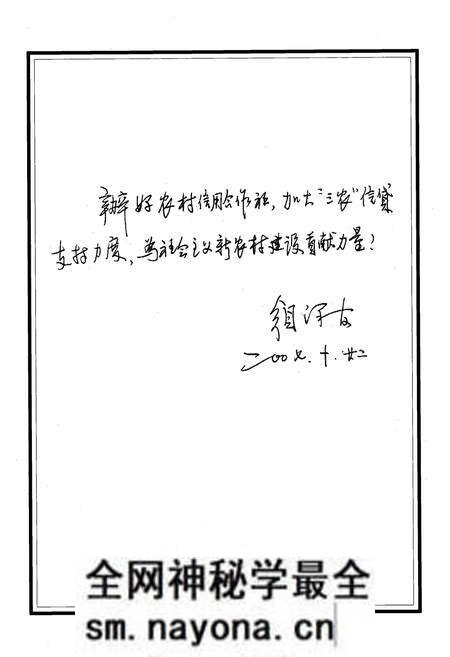 辦好农村信用合作社，加大“三农”信贷
支持力度，為社会主义新农村建设贡献力量！
二00七.十.廿二
全网神秘学最全
sm.nayona.cn